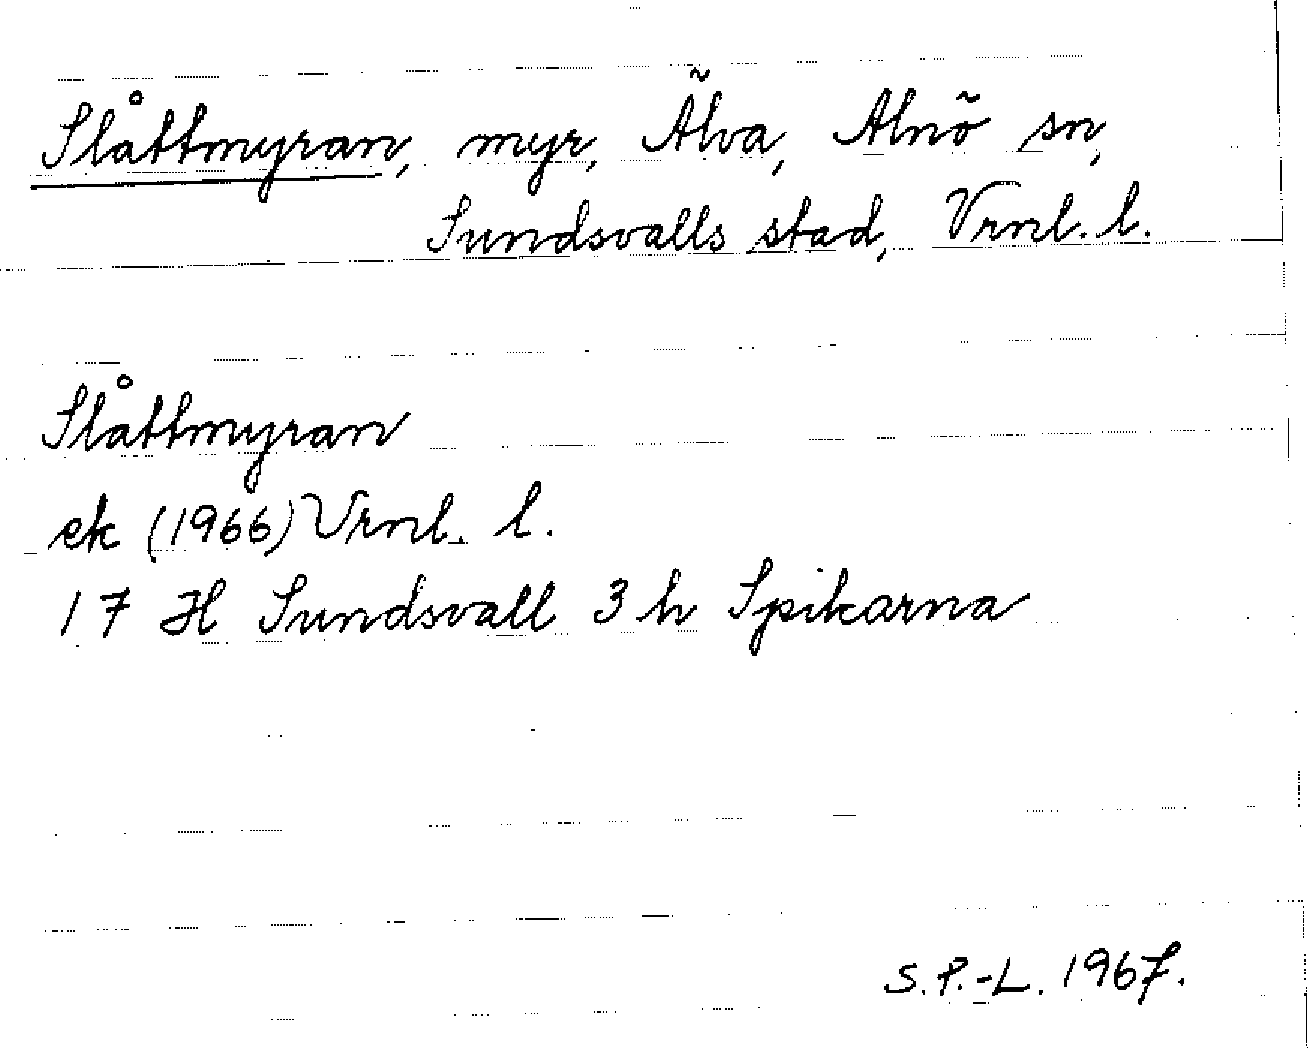 Slåttmyran, myr, Älva, Alnö sn,
Sundsvalls stad, Vrnl. l.
Slåttmyran
ek (1966) Vrnl. l.
17 H Sundsvall 3 h Spikarna
S.P.-L. 1967.